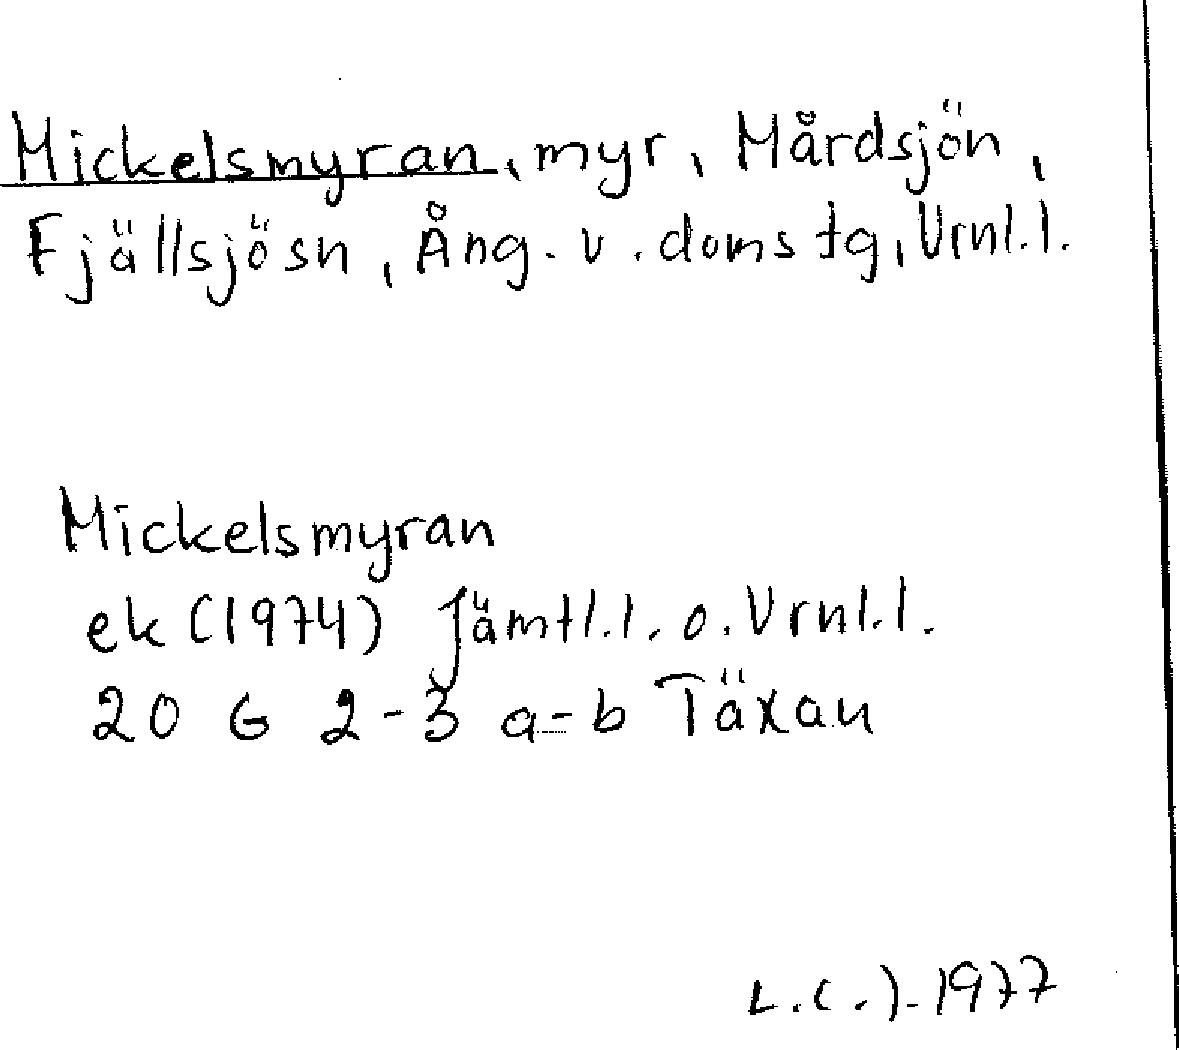 Mickelsmyran, myr, Mårdsjön,
Fjällsjösn, Ång. v. domstg, Vrnl.l.
Mickelsmyran
ek (1974) Jämtl.l. o. Vrnl.l.
20 G 2-3 a-b Täxan
L.C.J. 1977